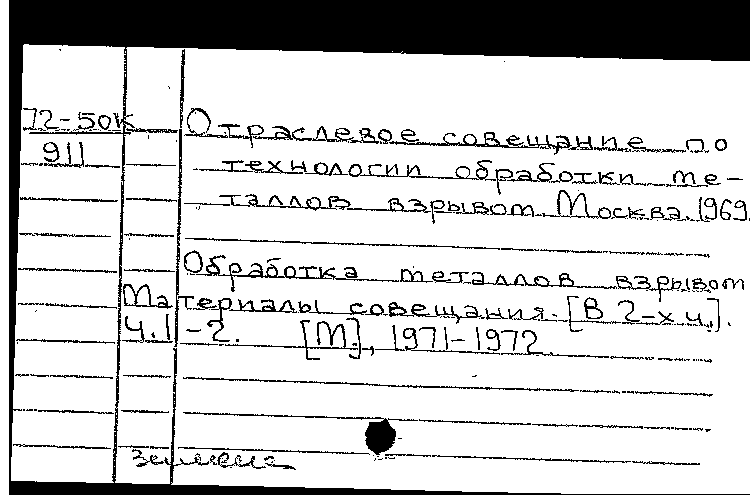 72-50К Отраслевое совещание по
911 технологии обработки ме-
таллов взрывом. Москва. 1969.
Обработка металлов взрывом
Материалы совещания. [В 2-х ч.].
Ч.1-2. [М.], 1971-1972.